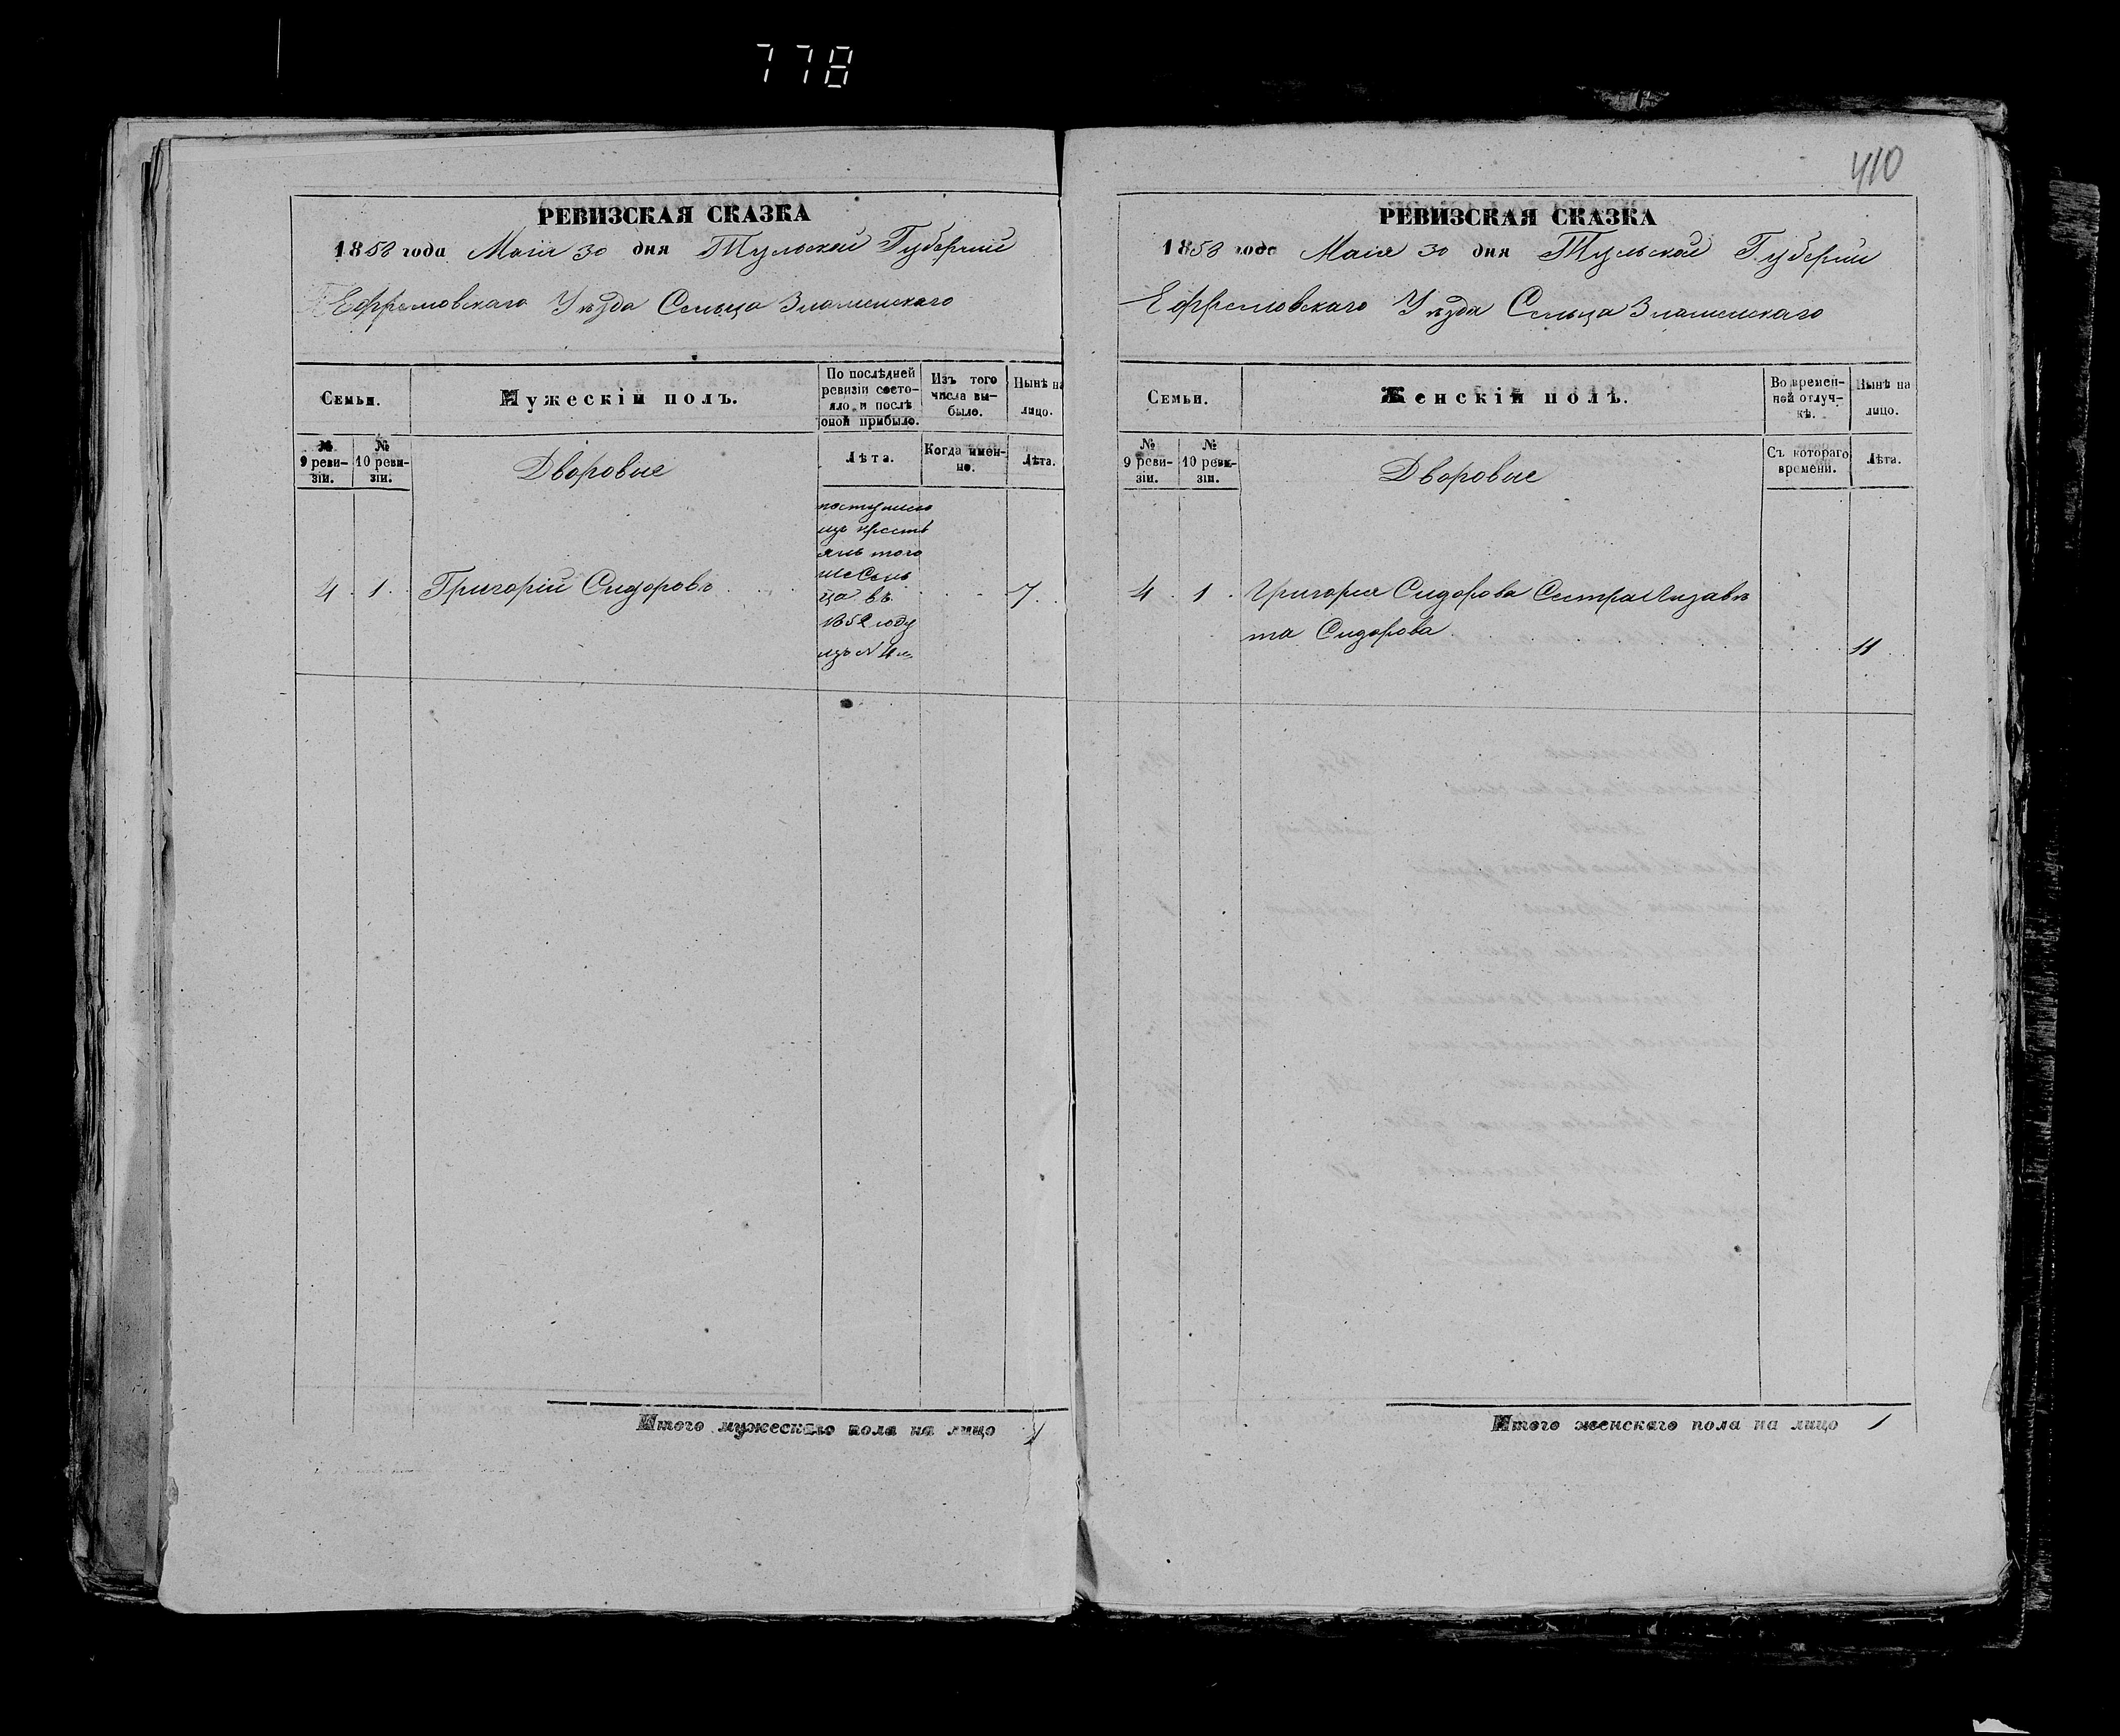 778
410
РЕВИЗСКАЯ СКАЗКА
1858 года Маія 30 дня Тульской Губерніи
Ефремовскаго Уѣзда Сельца Знаменскаго
Семьи.
Мужескій полъ.
По послѣдней
ревизіи состо-
яло и послѣ
оной прибыло.
Изъ того
числа вы-
было.
Нынѣ на
лицо.
№
9 реви-
зіи.
№
10 реви-
зіи.
Дворовые
Лѣта.
Когда имен-
но.
Лѣта.
поступилъ
изъ кресть
янъ того
же Сель
ца въ
1852 году
изъ № 4го
4 1 Григорій Сидоровъ 7
Итого мужескаго пола на лицо 1
РЕВИЗСКАЯ СКАЗКА
1858 года Маія 30 дня Тульской Губерніи
Ефремовскаго Уѣзда Сельца Знаменскаго
Семьи.
Женскій полъ.
Во времен-
ной отлуч-
кѣ.
Нынѣ на
лицо.
№
9 реви-
зіи.
№
10 реви-
зіи.
Дворовые
Съ котораго
времени.
Лѣта.
4 1 Григорія Сидорова Сестра Лизаве
та Сидорова 11
Итого женскаго пола на лицо 1